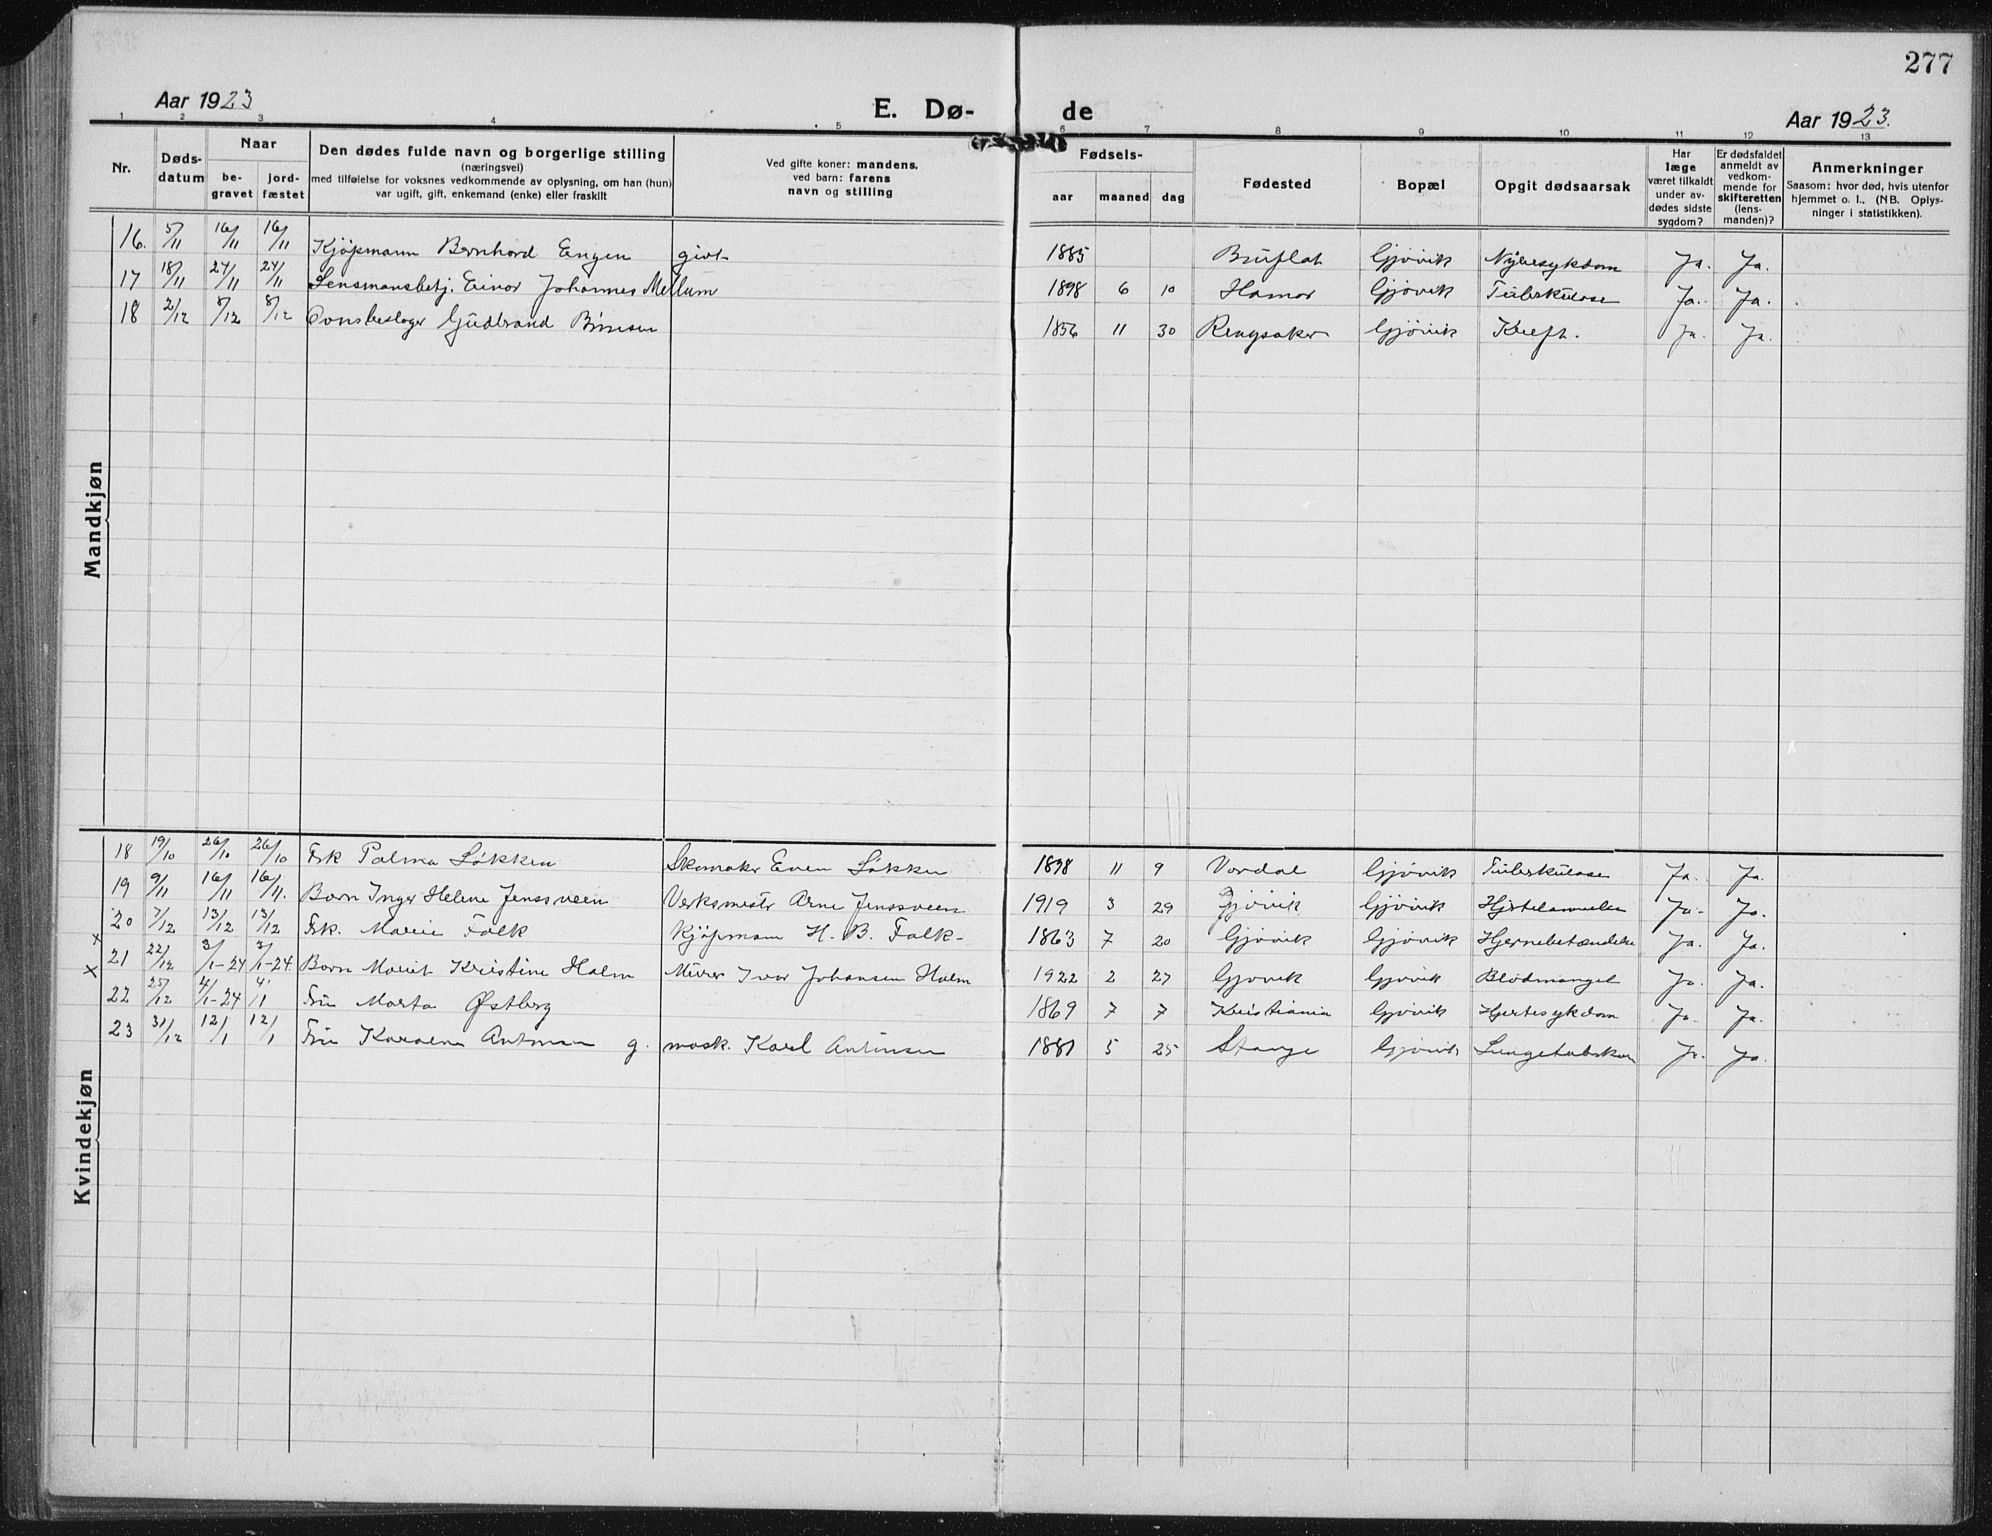 277
Aar 1923
E. Dø- de
Aar 1923.
1 2 3 4 5 6 7 8 9 10 11 12 13
Nr.
Døds-
datum
Naar
be-
gravet
jord-
fæstet
Den dødes fulde navn og borgerlige stilling
(næringsvei)
med tilføielse for voksnes vedkommende av oplysning, om han (hun)
var ugift, gift, enkemand (enke) eller fraskilt
Ved gifte koner: mandens,
ved barn: farens
navn og stilling
Fødsels-
aar maaned dag
Fødested
Bopæl
Opgit dødsaarsak
Har
læge
været tilkaldt
under av-
dødes sidste
sygdom?
Er dødsfaldet
anmeldt av
vedkom-
mende for
skifteretten
(lens-
manden)?
Anmerkninger
Saasom: hvor død, hvis utenfor
hjemmet o. l., (NB. Oplys-
ninger i statistikken).
Mandkjøn
16. 5/11 16/11 16/11 Kjøpmann Bernhard Engen givt 1885 Bruflat Gjøvik Nyresykdom Ja. Ja.
17 18/11 24/11 24/11 Lensmansbetj. Einar Johannes Mellum 1898 6 10 Hamar Gjøvik Tuberkulose Ja. Ja.
18 2/12 8/12 8/12 Gudbrand 1856 11 30 Ringsaker Gjøvik Kreft. Ja. Ja.
Kvindekjøn
18 19/10 26/10 26/10 Frk Palma Løkken Skomaker Even Løkken 1898 11 9 Vardal Gjøvik Tuberkulose Ja. Ja.
19 9/11 16/11 16/11. Barn Inger Helene Jenssveen Verksmestr Arne Jenssveen 1919 3 29 Gjøvik Gjøvik Ja. Ja.
20 7/12 13/12 13/12 Frk. Marie Falk Kjøpmann H. B. Falk- 1863 7 20 Gjøvik Gjøvik Hjernebetændelse Ja. Ja.
x 21 22/12 3/1-24 3/1-24. Barn Marit Kristine Holm Murer Ivar Johansen Holm 1922 2 27 Gjøvik Gjøvik Blodmangel Ja. Ja.
x 22 25/12 4/1-24 4/1 Fru Marta Østberg 1869 7 7 Kristiania Gjøvik Hjertesykdom Ja. Ja.
23 31/12 12/1 12/1 Fru Karoline Antonsen g. mask. Karl Antonsen 1881 5 25 Stange Gjøvik Ja. Ja.